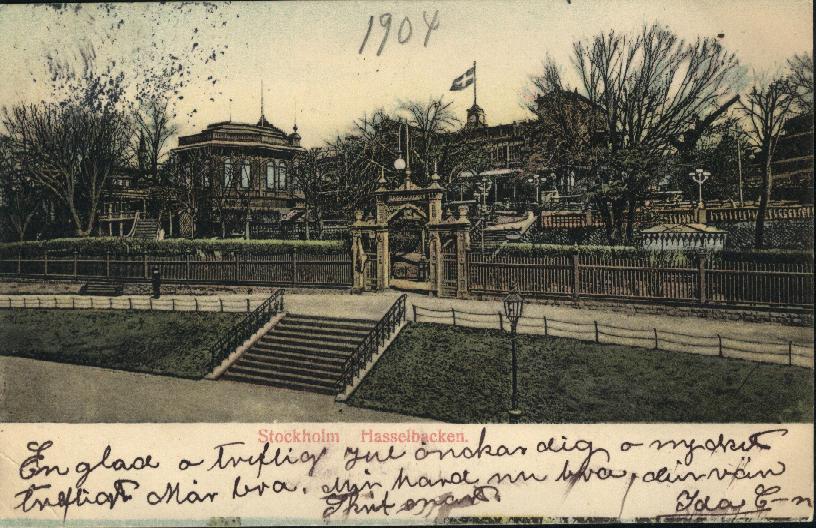 1904
Stockholm Hasselbacken.
En glad o treflig Jul önskar dig o mycket
trefligt Mår bra. din hand nu bra, din vän
Skrif snart Ida C-n